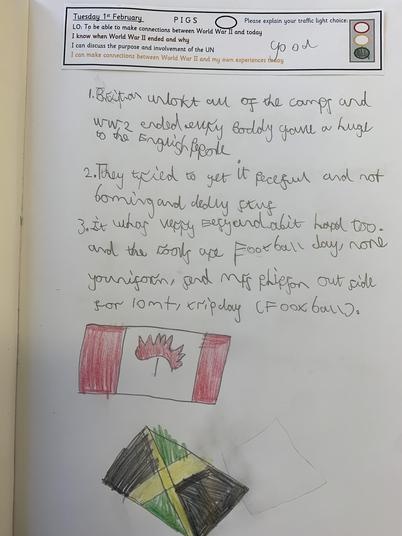 Tuesday 1st February PIGS Please explain your traffic light choice:
LO: To be able to make connections between World War II and today
I know when World War II ended and why
I can discuss the purpose and involvement of the UN
I can make connections between World War II and my own experiences today
good
1. unlokt all of the camps and
WW2 ended, evrey boddy gave a huge
to the English
2. They tried to get it peceful and not
boming and dedly stuf
3. It whas verry eesy and a bit hard too.
and the rools are Football day, none
youniform, send out side
for 10mt, day (Football).